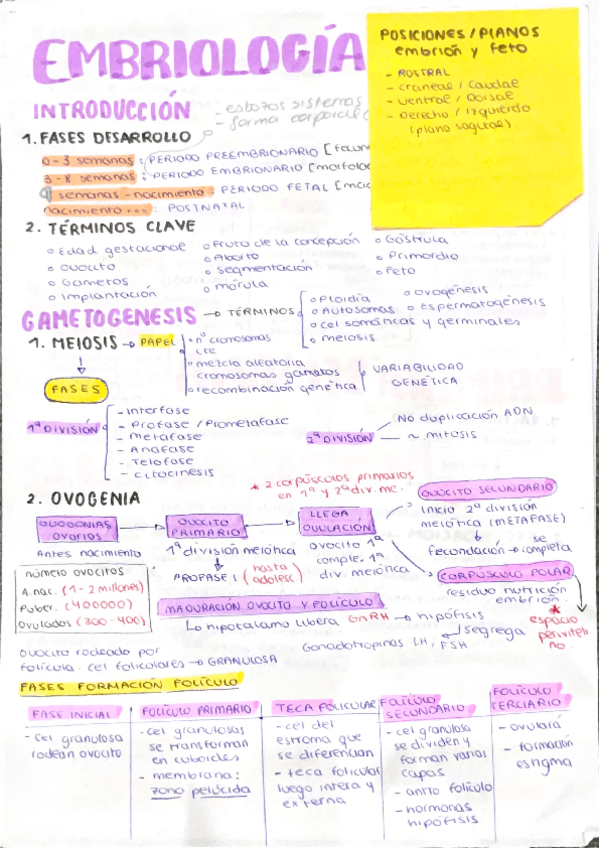 EMBRIOLOGÍA
POSICIONES / PLANOS
embrión y feto
- ROSTRAL
- craneal / caudal
- ventral / Dorsal
- derecho / izquierdo
(plano sagital)
INTRODUCCIÓN
- esbozos sistemas
- forma corporal
1. FASES DESARROLLO
0-3 semanas: PERIODO PREEMBRIONARIO [fecun
3-8 semanas: PERIODO EMBRIONARIO [morfolo
9 semanas - nacimiento: PERIODO FETAL [mad
nacimiento ...: POSTNATAL
2. TÉRMINOS CLAVE
o Edad gestacional
o ovocito
o Gametos
o implantación
o Fruto de la concepción
o Aborto
o segmentación
o mórula
o Gástrula
o Primordio
o Feto
GAMETOGENESIS → TÉRMINOS
o Ploidia
o Autosomas
o cel somáticas y germinales
o meiosis
o ovogénesis
o Espermatogénesis
1. MEIOSIS → PAPEL
• nº cromosomas
cte
• mezcla aleatoria
cromosomas gametos
• recombinación genética
VARIABILIDAD
GENÉTICA
FASES
1ª DIVISIÓN
- Interfase
- Profase / Prometafase
- Metafase
- Anafase
- Telofase
- citocinesis
2ª DIVISIÓN
No duplicación ADN
~ mitosis
2. OVOGENIA
* 2 corpúsculos primarios
en 1ª y 2ª div. me.
OVOGONIAS
ovarios
Antes nacimiento
OVOCITO
PRIMARIO
1ª división meiótica
PROFASE I (hasta
adolesc)
LLEGA
OVULACIÓN
ovocito 1ª
comple. 1ª
div. meiótica
OVOCITO SECUNDARIO
Inicio 2ª división
meiótica (METAFASE)
fecundación → se
completa
CORPÚSCULO POLAR
residuo nutrición
embrión.
*
espacio
periviteli
no.
número ovocitos
A.nac. (1-2 millones)
Puber. (400000)
Ovulados (300-400)
MADURACIÓN OVOCITO Y FOLÍCULO
↳ hipotálamo libera GnRH → hipófisis
segrega
Gonadotropinas LH, FSH
Ovocito rodeado por
folícula. cel foliculares → GRANULOSA
FASES FORMACIÓN FOLÍCULO
FASE INICIAL
- Cel granulosa
rodean ovocito
FOLÍCULO PRIMARIO
- cel granulosas
se transforman
en cuboides
- membrana:
zona pelúcida
TECA FOLICULAR
- cel del
estroma que
se diferencian
- teca folicular
luego intera y
externa
FOLÍCULO
SECUNDARIO
- cel granulosa
se dividen y
forman varias
capas
- antro folículo
- hormonas
hipófisis
FOLÍCULO
TERCIARIO
- ovulará
- formación
estigma